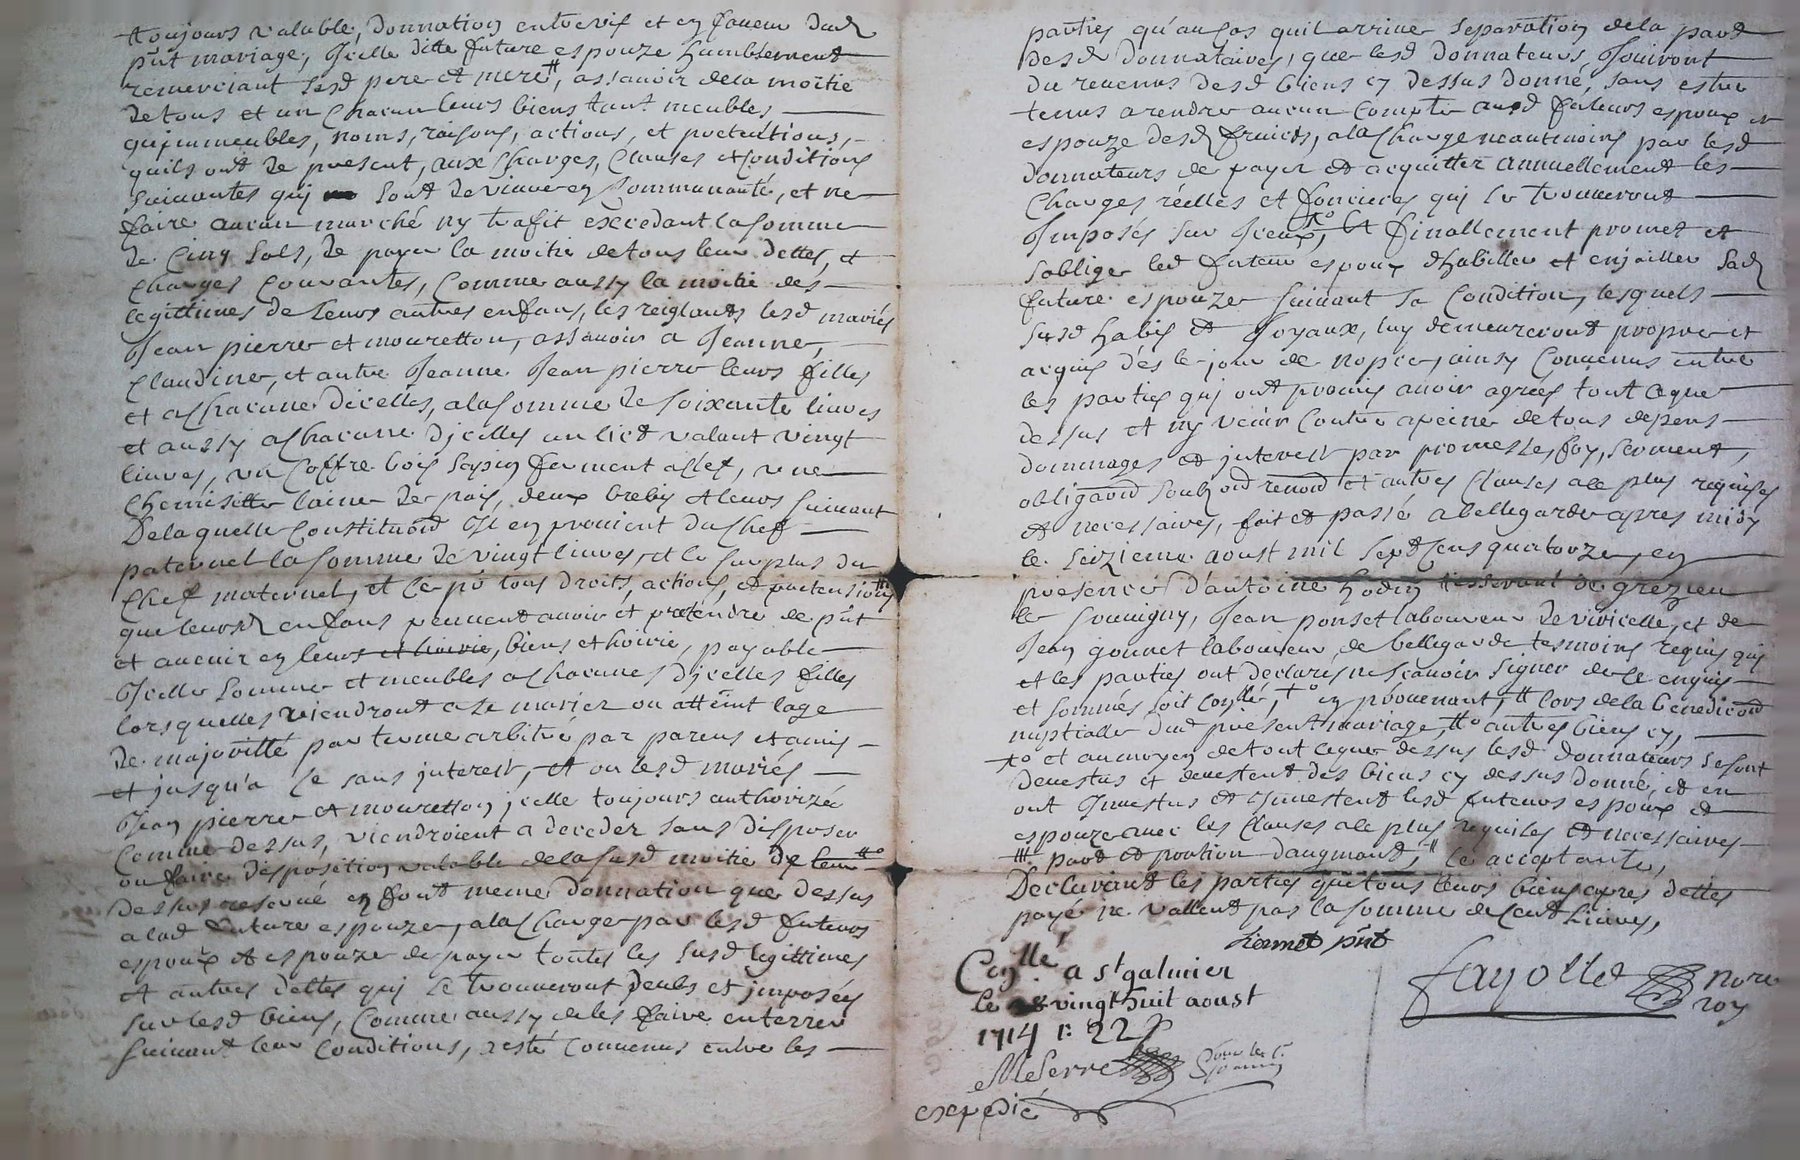 toujours valable, donnation entrevif et en faveur dud
pñt mariage, Jcelle ditte future espouze humblement
remerciant sesd pere et mere #, assavoir de la moitié
de tous et un chacun leurs biens tant meubles
qu'immeubles, noms, raisons, actions, et pretentions,
quils ont de present, aux charges, clauses et conditions
suivantes qui sont de vivre en communauté, et ne
faire aucun marché ny trafit excedant la somme
de cinq sols, de payer la moitie de tous leur dettes, et
charges courantes, comme aussy la moitie des
legittimes de leurs autres enfans, les reiglants lesd mariés
Jean pierre et mouretton, assavoir a Jeanne,
Claudine, et autre Jeanne Jean pierre leurs filles
et a chacune dicelles, a la somme de soixante livres
et aussy a chacune djcelles un lict valant vingt
livres, un coffre bois sapin ferment a clef, une
chemisette laine de pais, deux brebis et leurs suivant
De laquelle constitution Jl en provient du chef
paternel la somme de vingt livres, et le surplus du
chef maternel, et ce po tous droits, actions, et pretensions
que leursd enfans peuvent avoir et pretendre de pñt
et avenir en leurs et hoirie, biens et hoirie, payable
Jcelle somme et meubles a chacunes djcelles filles
lorsquelles viendront a se marier ou atteint lage
de majoritté par terme arbitré par parens et amis
et jusqu'a ce sans jnterest, et ou lesd mariés
Jean pierre et mouretton jcelle toujours authorizée
Comme dessus, viendroient a deceder sans disposer
ou faire disposition valable de la susd moitie de leur #o
dessus reservé en font meme donnation que dessus
a lad future espouze, a la charge par lesd futeurs
espoux et espouze de payer toutes les susd legittimes
et autres dettes qui se trouveront deubs et jmposées
sur lesd biens, comme aussy de les faire enterrer
suivant leur conditions, resté convenus entre les
parties qu'au cas quil arrive separation de la part
desd donnataires, que lesd donnateurs Jouiront
du revenus desd biens cy dessus donné, sans estre
tenus a rendre aucun compte ausd futeurs espoux et
espouze desd fruicts, a la charge neantmoins par lesd
donnateurs de payer et acquitter annuellement les
charges réelles et foncieres qui se trouveront
Jmposés sur Jceux, +o et finallement promet et
s'oblige led futeur espoux d'habiller et enjoailler sad
future espouze suivant sa condition, lesquels
susd habis et Joyaux, luy demeureront propre et
acquis dés le jour de nopce, ainsy convenus entre
les parties qui ont promis avoir agreé tout ce que
dessus et ny venir contre a peine de tous depens
dommages et jnterest par promesse, foy, serment,
obligaõn soubzõn renoõn et autres clauses a ce plus requises
et necessaires, fait et passé a bellegarde apres midy
le seizieme aoust mil sept cens quatorze, en
presence d'antoine hodin tisserant de grezieu
le souvigny, Jean ponset laboureur de viricelle, et de
Jean gonnet laboureur de bellegarde tesmoins requis qui
et les parties ont declares ne scavoir signer de ce enquis
et sommés soit conllé, +o en provenant, # lors de la benediõn
nuptialle dud present mariage, #o autres biens cy,
+o et au moyen de tout ce que dessus lesd donnateurs se sont
devestus et devestent des biens cy dessus donné, et en
ont Jnvestus et Jnvestent lesd futeurs espoux et
espouze avec les clauses a ce plus requises et necessaires
#! part et portion d'augment, # ce acceptante,
Declarant les parties que tous leurs biens apres dettes
payé ne vallent pas la somme de cent livres,
pñt
Conllé a st galmier
le vingt huit aoust
1714 r: 22
expedié
fayolle
nore
roy